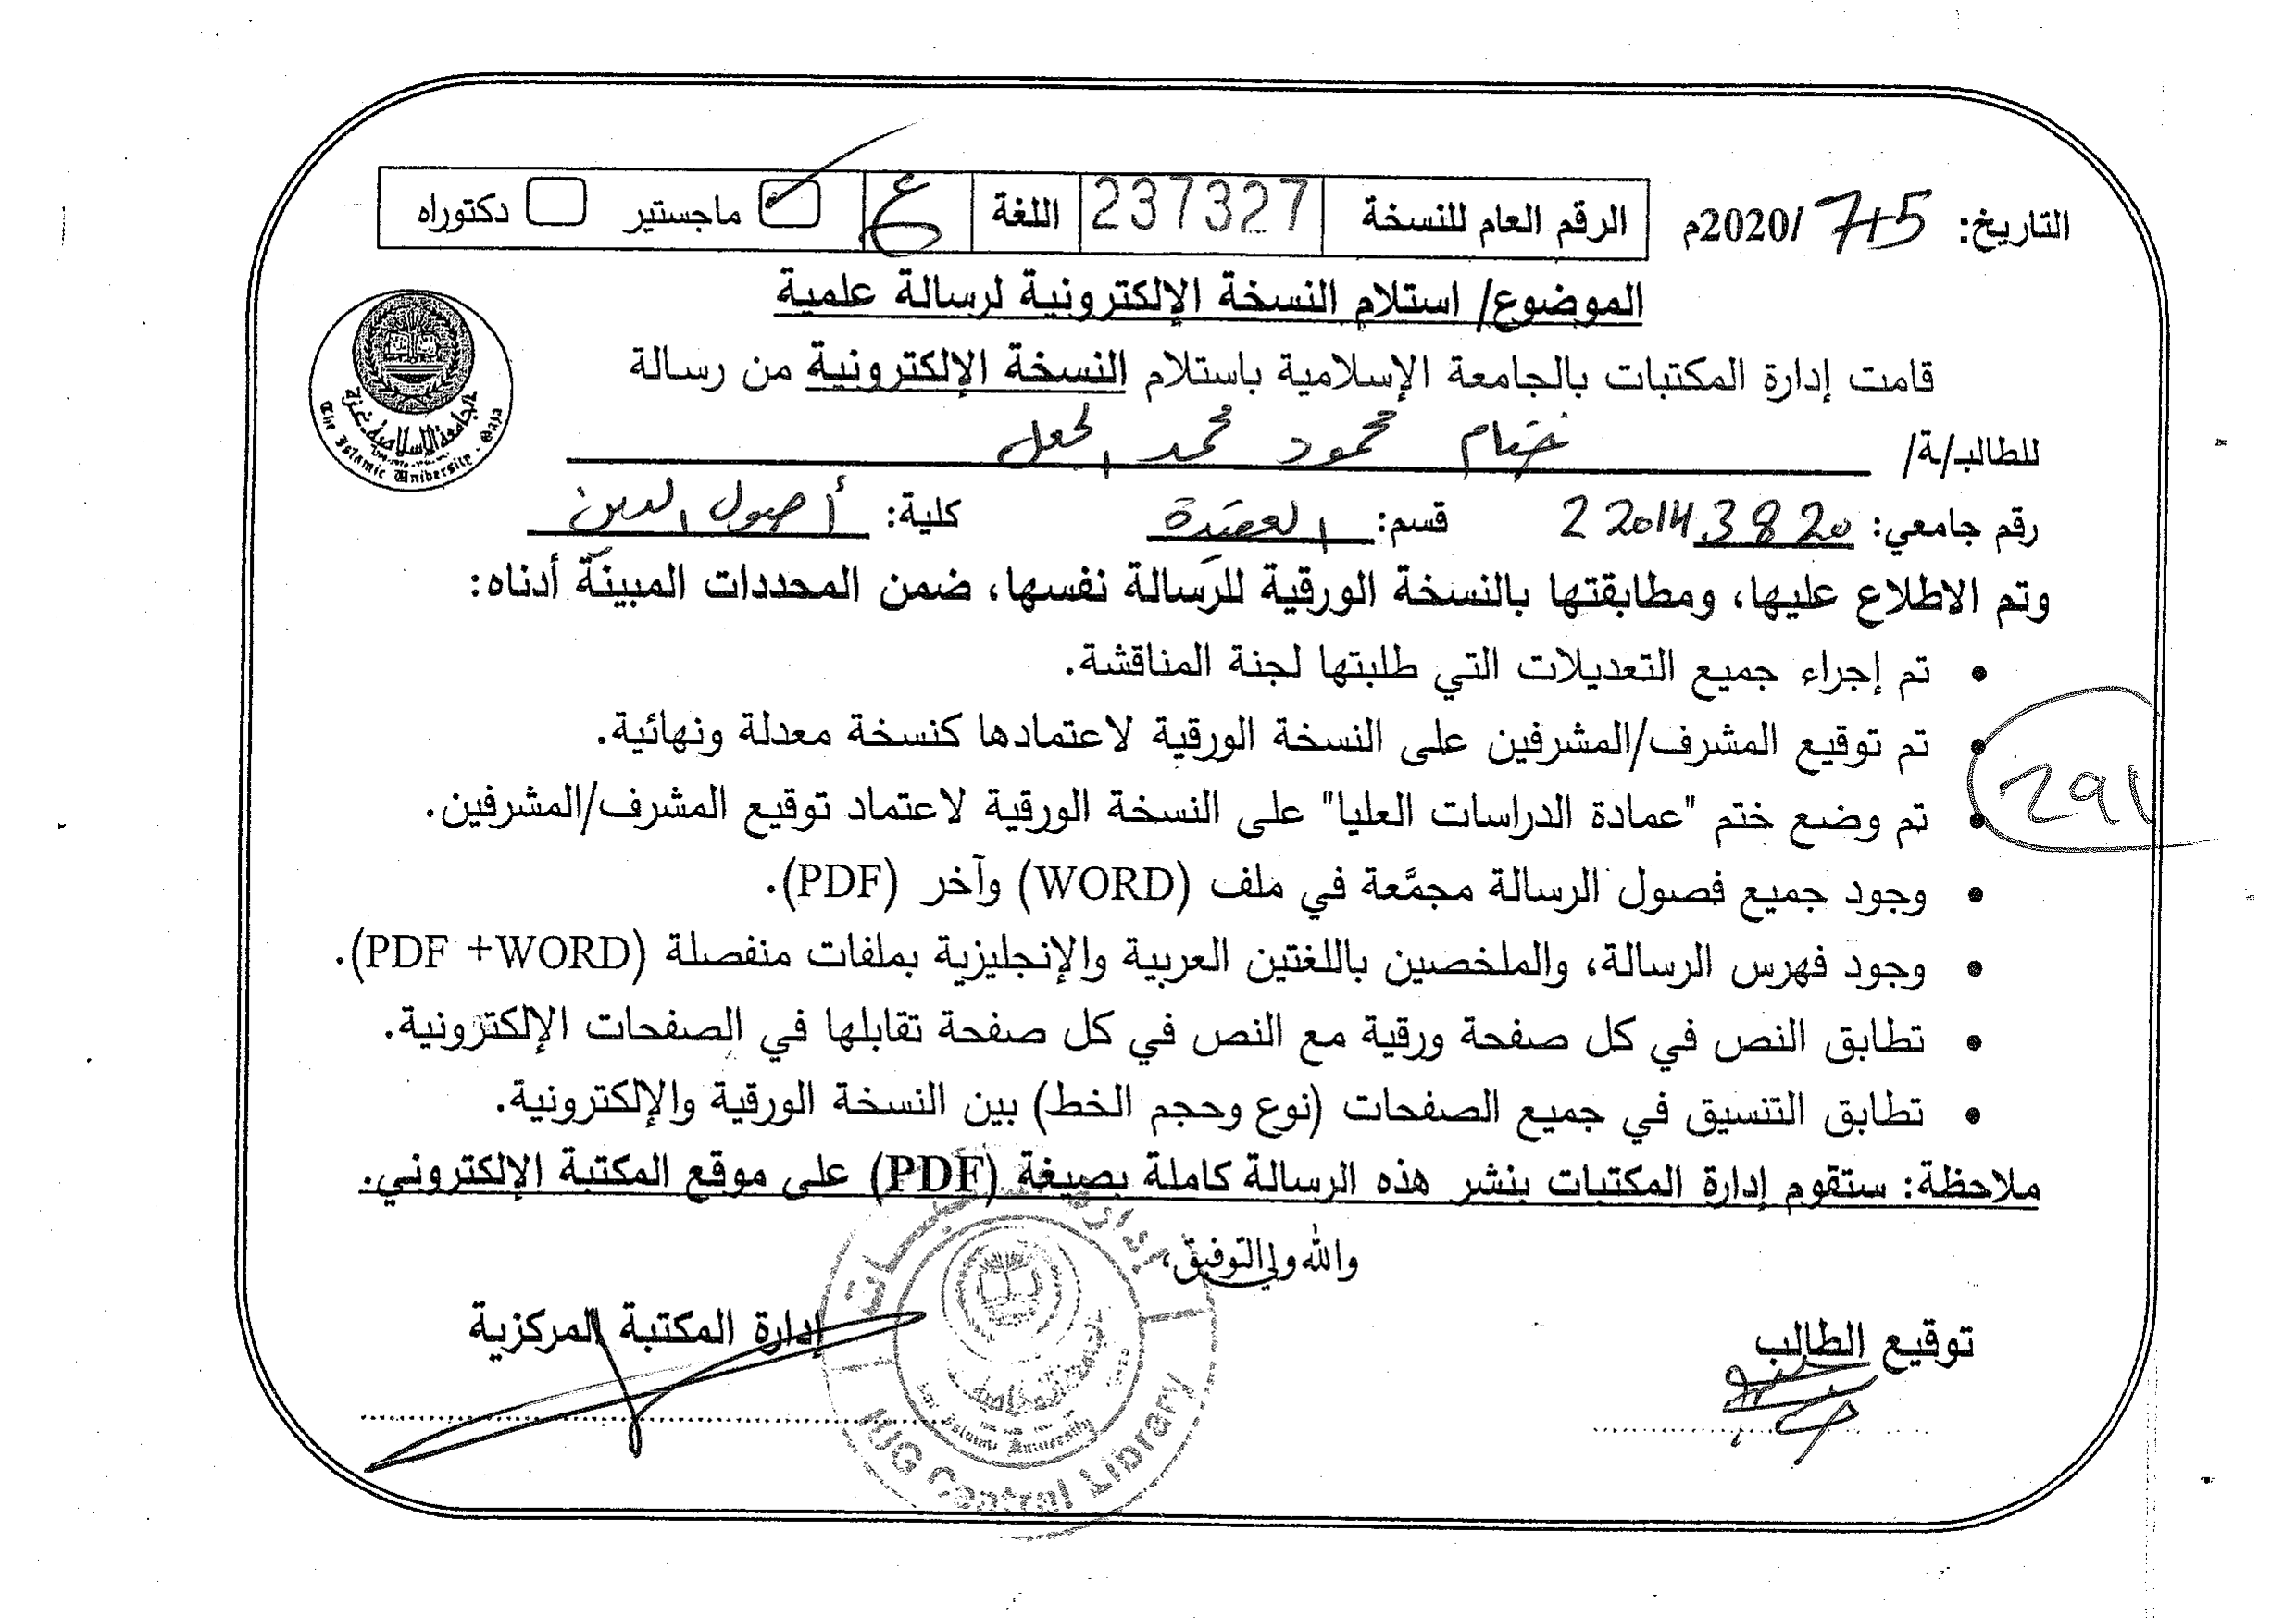 التاريخ: 7/5 /2020م الرقم العام للنسخة 237327 اللغة ع ماجستير دكتوراه
الموضوع/ استلام النسخة الإلكترونية لرسالة علمية
الجامعة الإسلامية غزة
The Islamic University - Gaza
قامت إدارة المكتبات بالجامعة الإسلامية باستلام النسخة الإلكترونية من رسالة
للطالب/ة/ ختام محمود محمد الجعل
رقم جامعي: 220143820 قسم: العقيدة كلية: أصول الدين
وتم الاطلاع عليها، ومطابقتها بالنسخة الورقية للرسالة نفسها، ضمن المحددات المبينة أدناه:
• تم إجراء جميع التعديلات التي طلبتها لجنة المناقشة.
• تم توقيع المشرف/المشرفين على النسخة الورقية لاعتمادها كنسخة معدلة ونهائية.
291
• تم وضع ختم "عمادة الدراسات العليا" على النسخة الورقية لاعتماد توقيع المشرف/المشرفين.
• وجود جميع فصول الرسالة مجمَّعة في ملف (WORD) وآخر (PDF).
• وجود فهرس الرسالة، والملخصين باللغتين العربية والإنجليزية بملفات منفصلة (PDF +WORD).
• تطابق النص في كل صفحة ورقية مع النص في كل صفحة تقابلها في الصفحات الإلكترونية.
• تطابق التنسيق في جميع الصفحات (نوع وحجم الخط) بين النسخة الورقية والإلكترونية.
ملاحظة: ستقوم إدارة المكتبات بنشر هذه الرسالة كاملة بصيغة (PDF) على موقع المكتبة الإلكتروني.
والله ولي التوفيق،
توقيع الطالب إدارة المكتبة المركزية
IUG Central Library